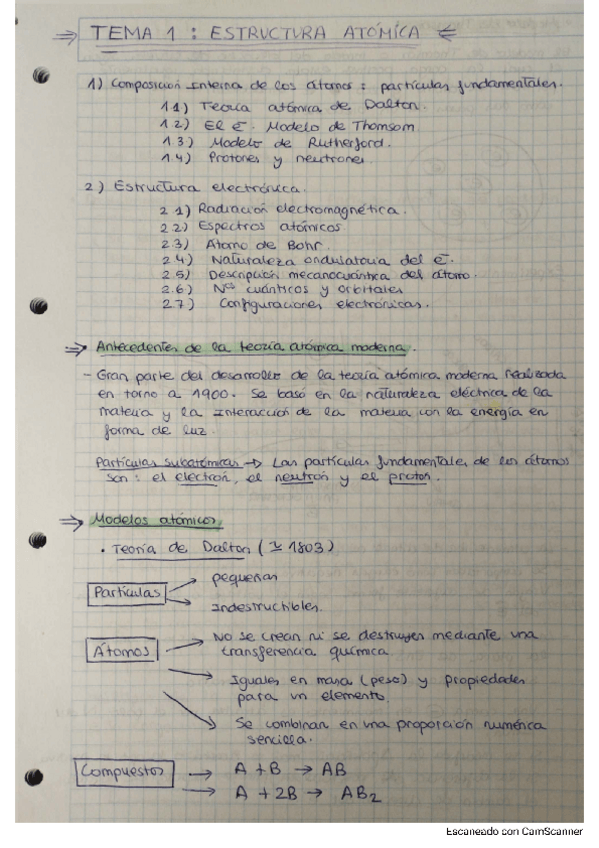 ⇒ TEMA 1 : ESTRUCTURA ATÓMICA ⇐
1) Composición interna de los átomos : partículas fundamentales.
1.1) Teoría atómica de Dalton.
1.2) El e⁻. Modelo de Thomsom.
1.3) Modelo de Rutherford.
1.4) Protones y neutrones.
2) Estructura electrónica.
2.1) Radiación electromagnética.
2.2) Espectros atómicos
2.3) Átomo de Bohr.
2.4) Naturaleza ondulatoria del e⁻.
2.5) Descripción mecanocuántica del átomo.
2.6) Nºs cuánticos y orbitales
2.7) Configuraciones electrónicas.
⇒ Antecedentes de la teoría atómica moderna.
- Gran parte del desarrollo de la teoría atómica moderna realizada
en torno a 1900. Se basó en la naturaleza eléctrica de la
materia y la interacción de la materia con la energía en
forma de luz.
Partículas subatómicas → Las partículas fundamentales de los átomos
son : el electrón, el neutrón y el protón.
⇒ Modelos atómicos.
• Teoría de Dalton ( ≃ 1803)
Partículas
→ pequeñas
→ Indestructibles.
Átomos
→ No se crean ni se destruyen mediante una
transferencia química
→ Iguales en masa (peso) y propiedades
para un elemento.
→ Se combinan en una proporción numérica
sencilla.
Compuestos
→ A + B → AB
→ A + 2B → AB₂
Escaneado con CamScanner